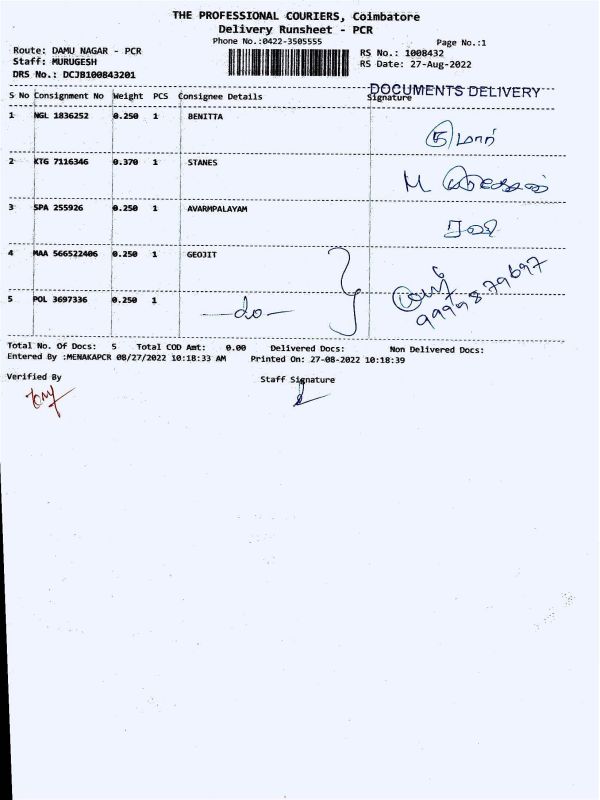 THE PROFESSIONAL COURIERS, Coimbatore
Delivery Runsheet - PCR
Phone No.:0422-3505555
Page No.:1
Route: DAMU NAGAR - PCR
RS No.: 1008432
Staff: MURUGESH
RS Date: 27-Aug-2022
DRS No.: DCJB100843201
DOCUMENTS DELIVERY
S No Consignment No Weight PCS Consignee Details Signature
1 NGL 1836252 0.250 1 BENITTA
2 KTG 7116346 0.370 1 STANES
3 SPA 255926 0.250 1 AVARMPALAYAM
4 MAA 566522406 0.250 1 GEOJIT
5 POL 3697336 0.250 1 —do—
Total No. Of Docs: 5 Total COD Amt: 0.00 Delivered Docs: Non Delivered Docs:
Entered By :MENAKAPCR 08/27/2022 10:18:33 AM Printed On: 27-08-2022 10:18:39
Verified By
Staff Signature